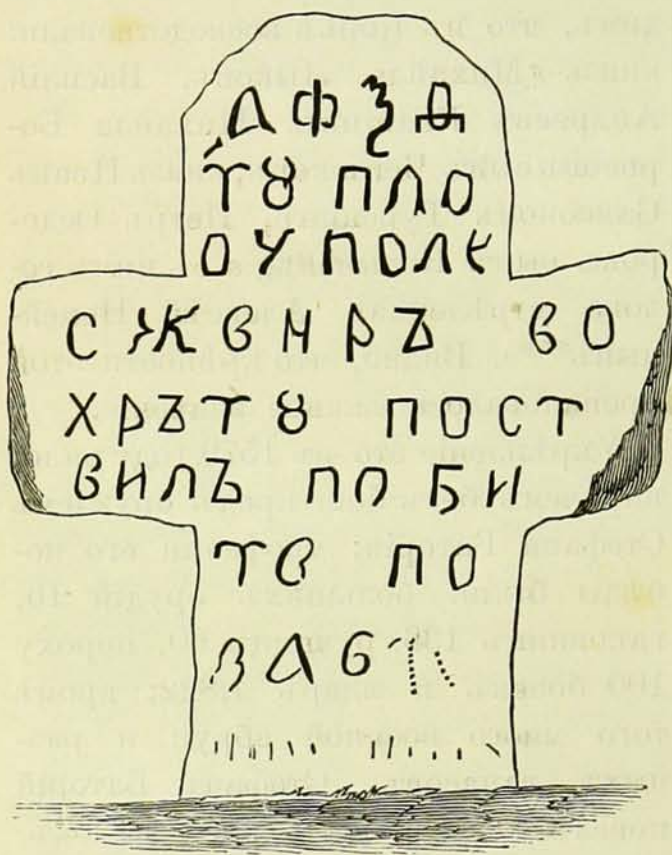 ҂АФЗД
Тꙋ ПЛО
ОУ ПОЛК
СЖВНРЪ ВО
ХРЪТꙋ ПОСТ
ВИЛЪ ПОБИ
ТВ ПО
ЗАБ